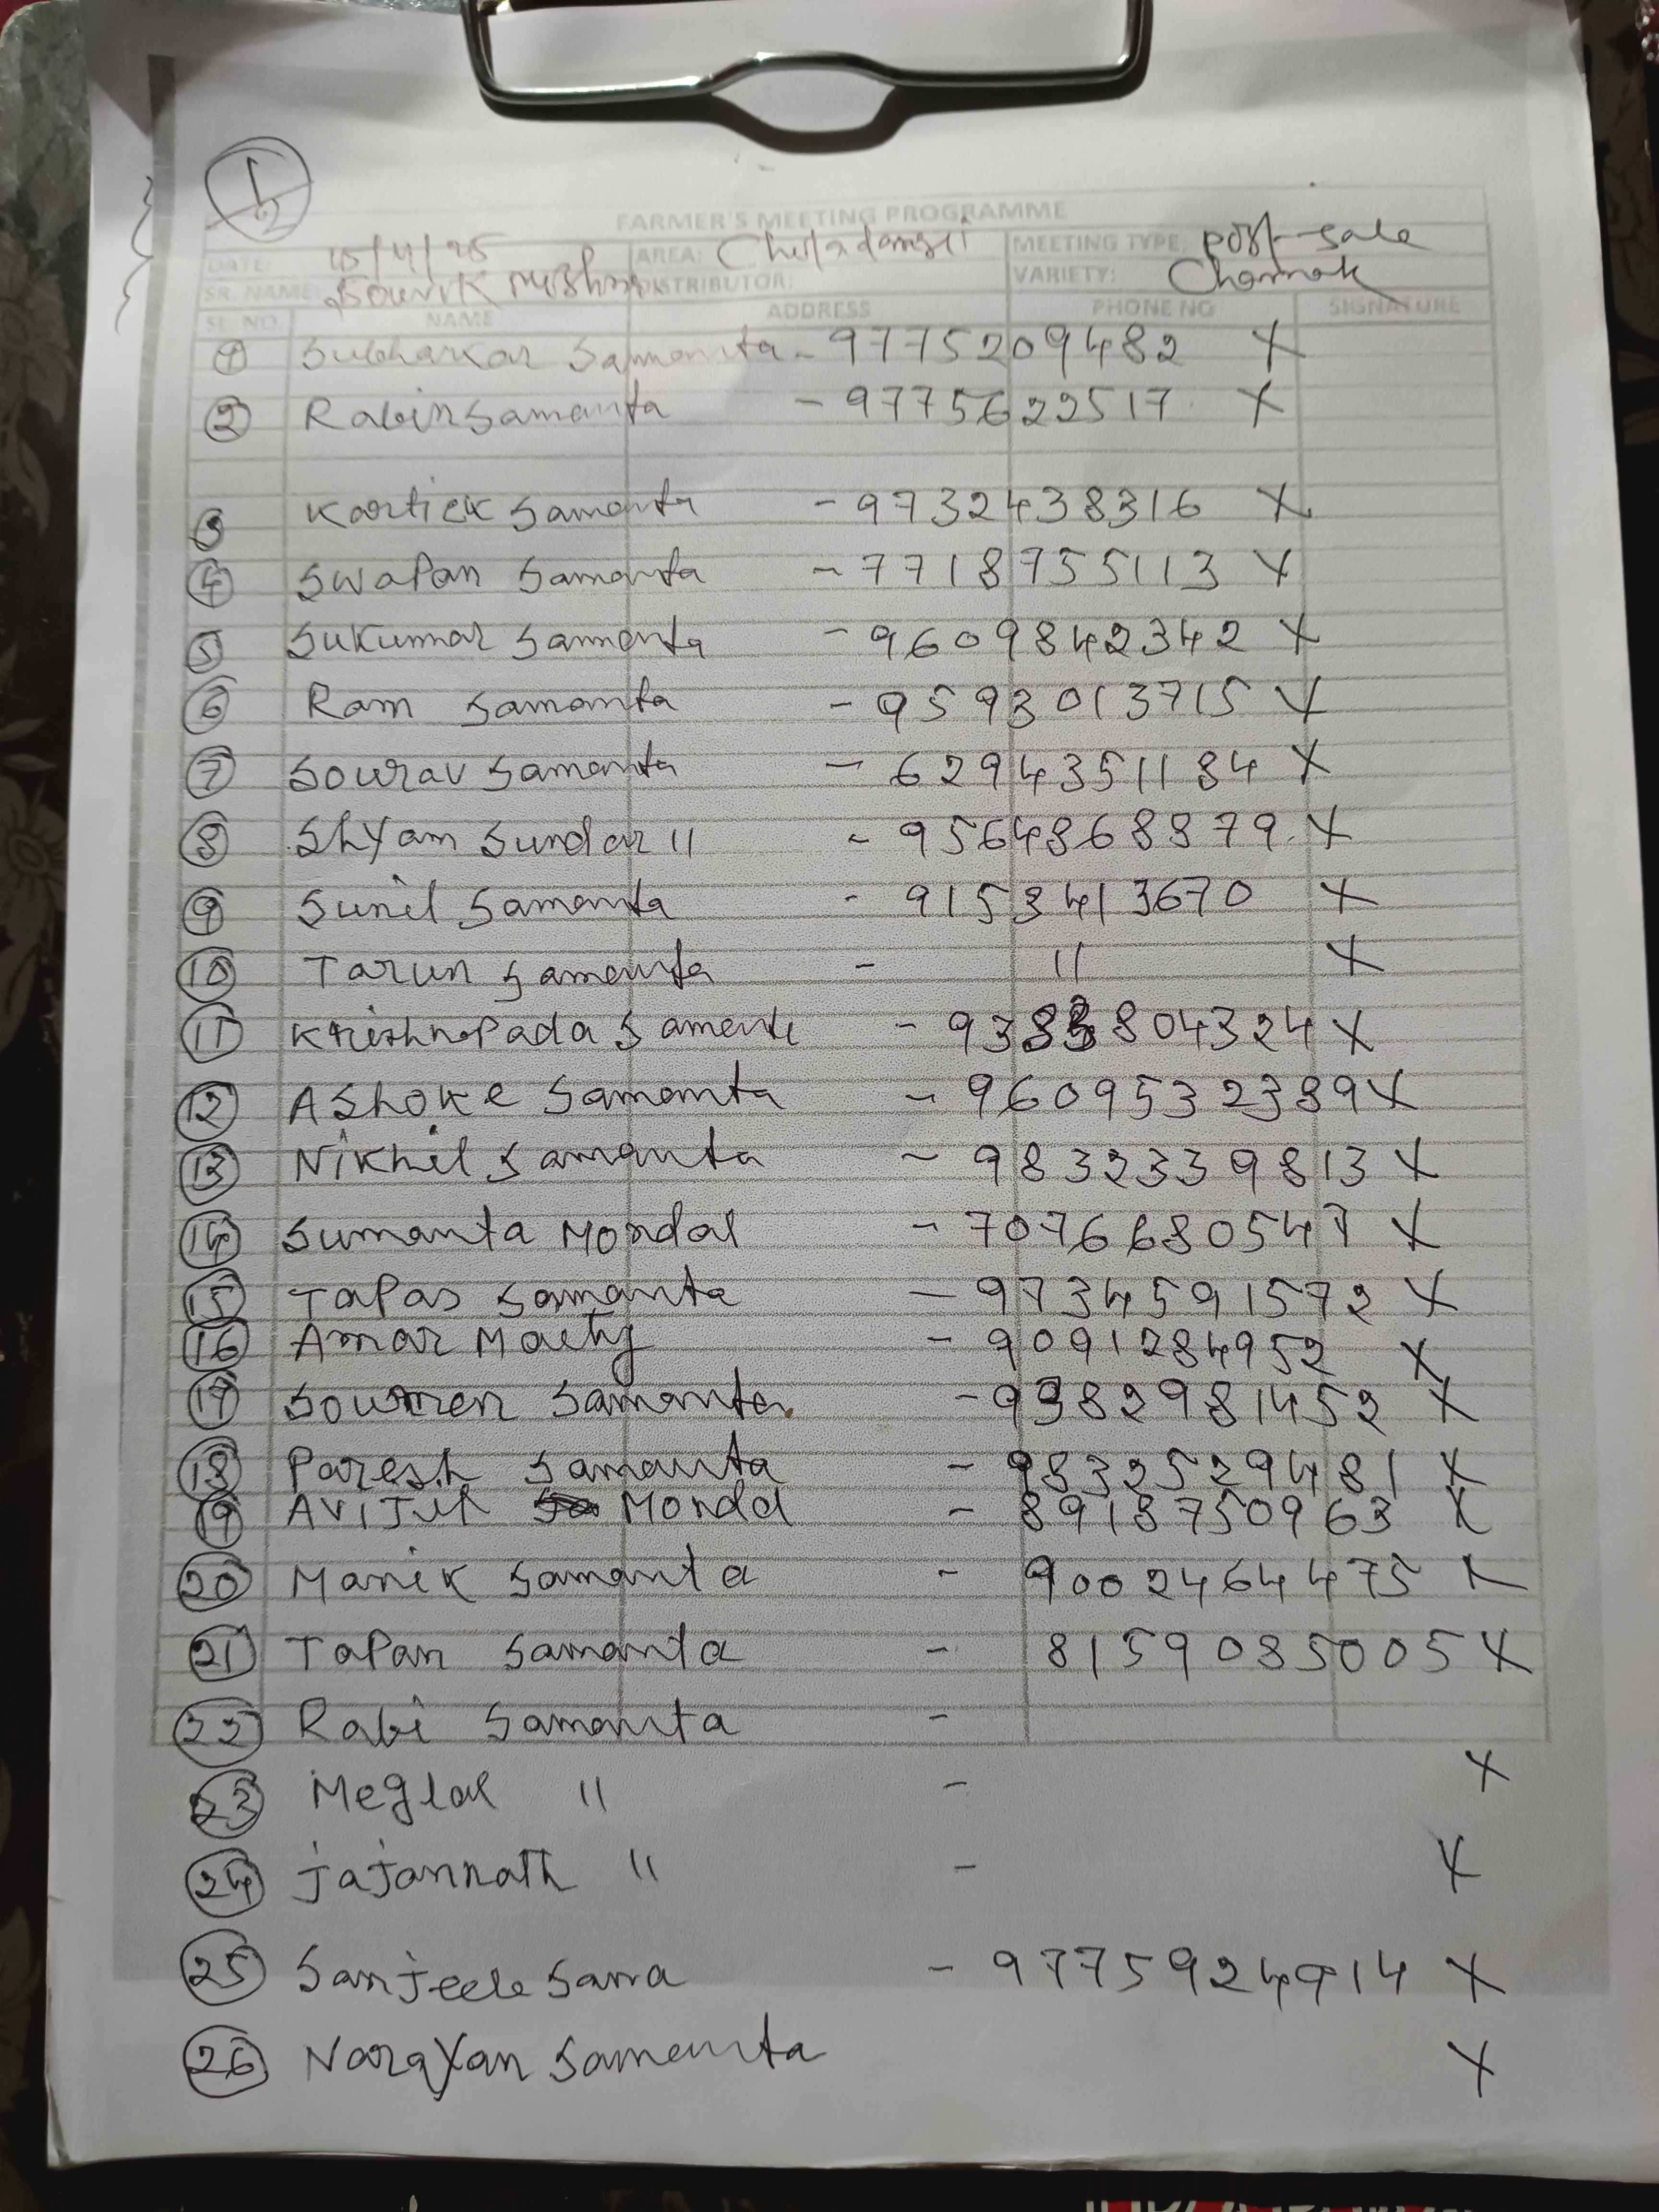 1/2
FARMER'S MEETING PROGRAMME
DATE: 15/4/25 AREA: MEETING TYPE: Post-sale
SR. NAME Souvik Mishra DISTRIBUTOR: VARIETY: Chamak
SL. NO NAME ADDRESS PHONE NO SIGNATURE
1 Subharkar Samanta - 9775209482 X
2 Rabin Samanta - 9775622517 X
3 Kartick Samanta - 9732438316 X
4 Swapan Samanta - 7718755113 X
5 Sukumar Samanta - 9609842342 X
6 Ram Samanta - 9593013715 X
7 Sourav Samanta - 6294351184 X
8 Shyam Sundar 11 - 9564868879 X
9 Sunil Samanta - 9153413670 X
10 Tarun Samanta - 11 X
11 Krishnapada Samanta - X
12 Ashoke Samanta - 9609532389 X
13 Nikhil Samanta - 9832339813 X
14 Sumanta Mondal - 7076680547 X
15 Tapas Samanta - 9734591572 X
16 Amar Maety - 9091284952 X
17 Soumen Samanta - 9382981452 X
18 Paresh Samanta - 9832529481 X
19 Avijit Mondal - 8918750963 X
20 Manik Samanta - 9002464475 X
21 Tapan Samanta - 8159085005 X
22 Rabi Samanta -
23 Meglal 11 - X
24 Jajannath 11 - X
25 Sanjeeb Sana - 9775924914 X
26 Narayan Samanta X